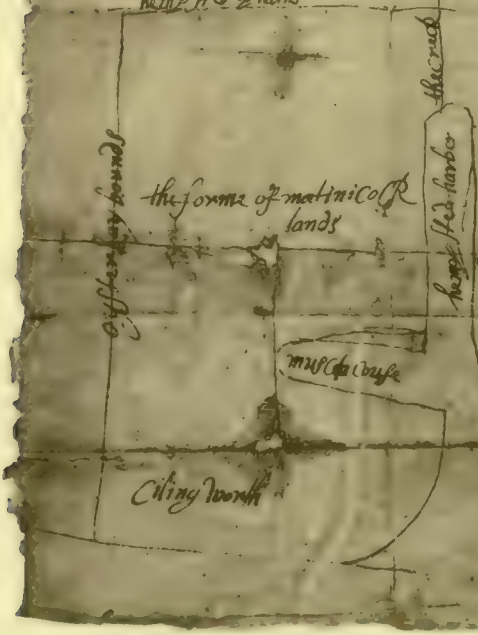 the creek
oisterbay bounds
the forme of matinicock
lands
hemsted harbo
Ciling worth